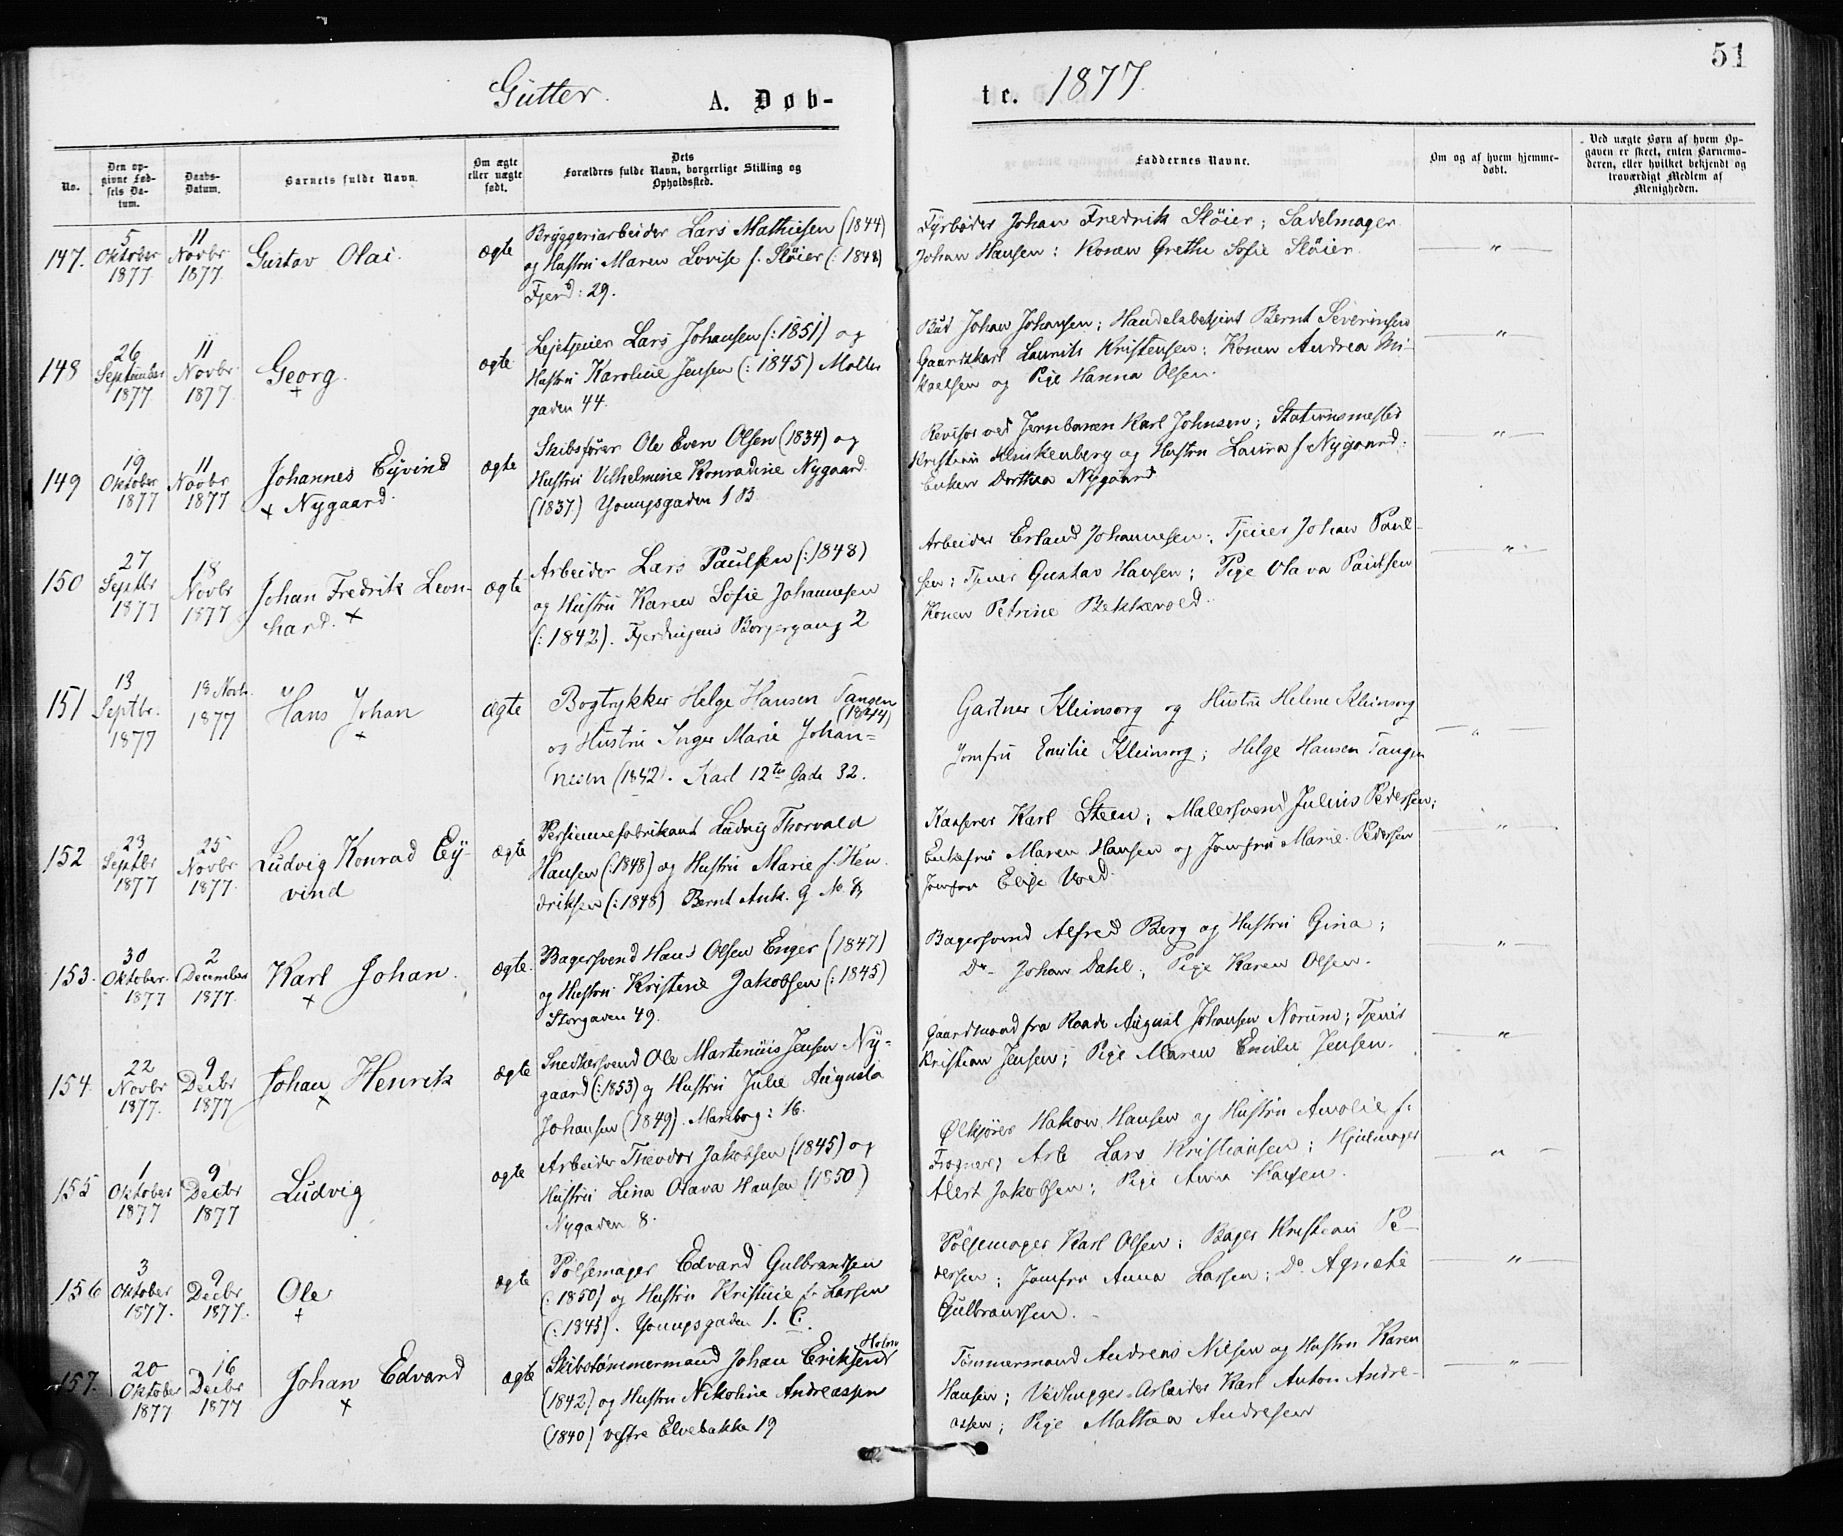 51
Gutter. A. Døb- te. 1877.
No.
Den op-
givne Fød-
sels Da-
tum.
Daabs-
Datum.
Barnets fulde Navn.
Om ægte
eller uægte
født.
Dets
Forældres fulde Navn, borgerlige Stilling og
Opholdssted.
Faddernes Navne.
Om og af hvem hjemme-
døbt.
Ved uægte Børn af hvem Op-
gaven er skeet, enten Barnemo-
deren, eller hvilket bekjendt og
troværdigt Medlem af
Menigheden.
147.
5
Oktober
1877
11
Novbr
1877
Gustav Olai.
ægte
Bryggeriarbeider Lars Mathisen (1844)
og Hustru Maren Lovise f. Støier (: 1848)
Fjerd: 29.
Fyrbøder Johan Fredrik Støier; Sadelmager
Johan Hansen; Konen Grethe Sofie Støier.
"
148
26
September
1877
11
Novbr
1877
Georg.
+
ægte
Lars Johansen (: 1851) og
Hustru Karoline Jensen (: 1845) Møller
gaden 44.
Bud Johan Johansen; Handelsbetjent Bernt Severinsen
Gaardskarl Laurits Kristensen; Konen Andrea Mi-
kaelsen og Pige Hanna Olsen.
"
149
19
Oktober
1877
11
Novbr
1877
Johannes Eyvind
+ Nygaard.
ægte
Skibsfører Ole Even Olsen (1834) og
Hustru Vilhelmine Konradine Nygaard
(1837) Youngsgaden 1 B.
Revisor ved Jernbanen Karl Johnsen; Stationsmester
Kristian Klinkenberg og Hustru Laura f Nygaard;
Enken Dorthea Nygaard
"
150
27
Septbr
1877
18
Novbr
1877
Johan Fredrik Leon-
hard. +
ægte
Arbeider Lars Paulsen (: 1848)
og Hustru Karen Sofie Johannesen
(: 1842). Fjerdingens Borgergang 2
Arbeider Erland Johannesen; Tjener Johan Paul-
sen; Tjener Gustav Hansen; Pige Olava Paulsen
Konen Petrine Bekkevold.
"
151
13
Septbr.
1877
18 Novb.
1877
Hans Johan
+
ægte
Bogtrykker Helge Hansen Tangen
(1844)
og Hustru Inger Marie Johan-
nesen (1842). Karl 12tes Gade 32.
Gartner Kleinsorg og Hustru Helene Kleinsorg
Jomfru Emilie Kleinsorg; Helge Hansen Tangen
"
152
23
Septbr
1877
25
Novbr
1877.
Ludvig Konrad Ey-
vind
ægte
Persiennefabrikant Ludvig Thorvald
Hansen (: 1848) og Hustru Marie f. Hen-
driksen (: 1848) Bernt Ank. G No 8
Kasserer Karl Steen; Malersvend Julius Pedersen;
Enkefru Maren Hansen og Jomfru Marie Pedersen
Jomfru Elise Vold.
"
153.
30
Oktober.
1877
2
December
1877.
Karl Johan.
+
ægte.
Bagersvend Hans Olsen Enger (1847)
og Hustru Kristine Jakobsen (: 1845)
Storgaden 49.
Bagersvend Alfred Berg og Hustru Gina;
Do Johan Dahl; Pige Karen Olsen.
"
154.
22
Novbr
1877.
9
Decbr
1877
Johan Henrik
+
ægte
Snedkersvend Ole Martinius Jensen Ny-
gaard (: 1853) og Hustru Julie Augusta
Johansen (1849). Maribog: 16.
Gaardmand fra Raade August Johansen Norum; Tjener
Kristian Jensen; Pige Maren Emilie Jensen.
"
155
1
Oktober
1877
9
Decbr
1877
Ludvig
ægte
Arbeider Theodor Jakobsen (1845) og
Hustru Lina Olava Hansen (1850)
Nygaden 8.
Ølkjører Hakon Hansen og Hustru Amalie f.
Frogner; Arb Lars Kristiansen; Hjulmager
Alert Jakobsen; Pige Anna Hansen.
"
156
3
Oktober
1877.
9
Decbr
1877.
Ole
+
ægte
Pølsemager Edvard Gulbrandsen
(: 1850) og Hustru Kristine f. Larsen
(: 1845). Youngsgaden 1. C.
Pølsemager Karl Olsen; Bager Kristian Pe-
dersen; Jomfru Anna Larsen; Do Agnete
Gulbranssen.
"
157.
20
Oktober
1877
16
Decbr
1877
Johan Edvard
+
ægte
Skibstømmermand Johan Eriksen Holm
(1842) og Hustru Nikoline Andreassen
(1840) vestre Elvebakke 19
Tømmermand Andreas Nilsen og Hustru Karen
Hansen; Vedhugger-Arbeider Karl Anton Andre-
assen; Pige Mathea Andresen
"